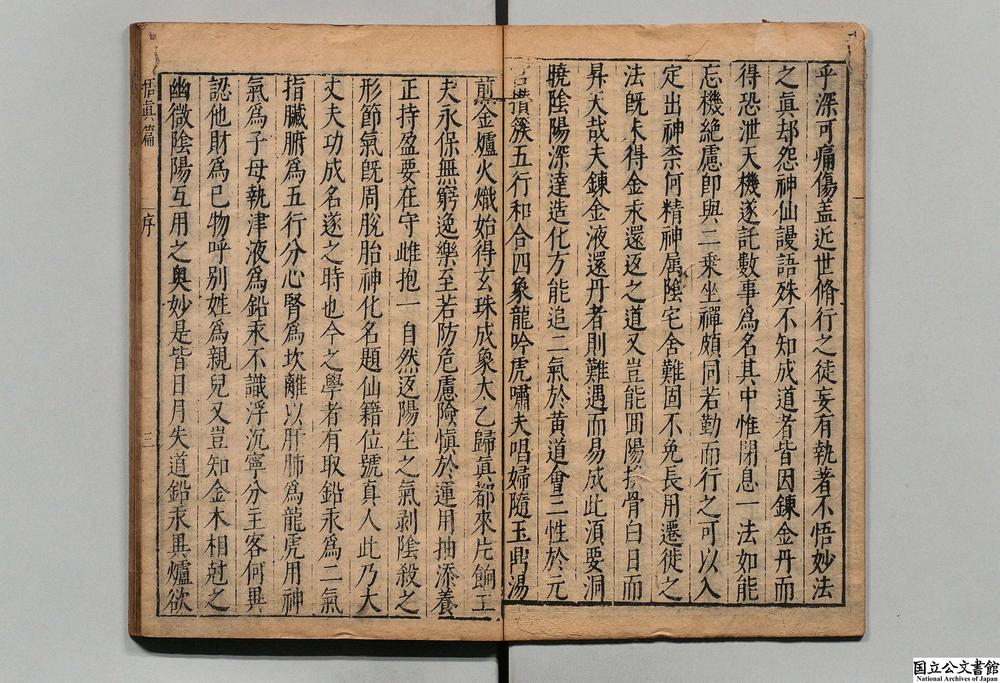 乎深可痛傷盖近世脩行之徒妄有執著不悟妙法
之眞却怨神仙謾語殊不知成道者皆因鍊金丹而
得恐泄天機遂託數事爲名其中惟閉息一法如能
忘機絶慮即與二乗坐禪頗同若勤而行之可以入
定出神柰何精神属陰宅舍難固不免長用遷徙之
法既未得金汞還返之道又豈能囬陽換骨白日而
昇天哉夫鍊金液還丹者則難遇而易成此湏要洞
曉陰陽深達造化方能追二氣於黄道會三性於元
宫攢簇五行和合四象龍吟虎嘯夫唱婦隨玉鼎湯
煎金爐火熾始得玄珠成象太乙歸眞都來片餉工
夫永保無窮逸樂至若防危慮險慎於運用抽添養
正持盈要在守雌抱一自然返陽生之氣剥陰殺之
形節氣既周脫胎神化名題仙籍位號真人此乃大
丈夫功成名遂之時也今之學者有取鉛汞爲二氣
指臟腑爲五行分心腎爲坎離以肝肺爲龍虎用神
氣爲子母執津液爲鉛汞不識浮沉寧分主客何異
認他財爲已物呼别姓爲親兒又豈知金木相尅之
幽微陰陽互用之奥妙是皆日月失道鉛汞異爐欲
悟眞篇 序 三
国立公文書館
National Archives of Japan